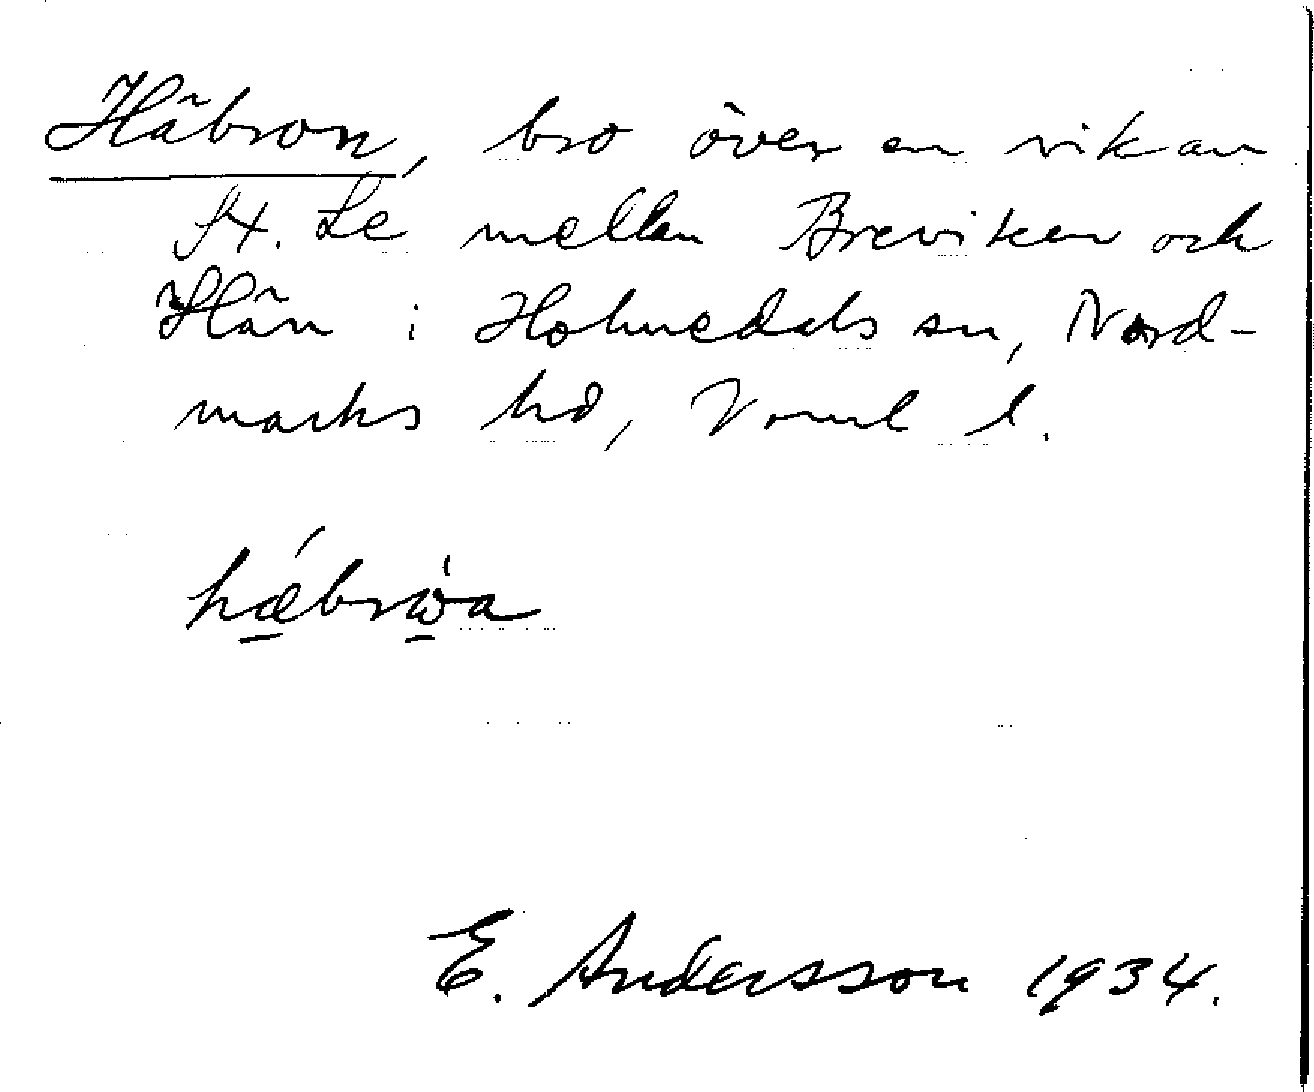 Häbron, bro över en vik av
St. Le mellan Breviken och
Hän i Holmedals sn, Nord-
marks hd, Vrml l.
hǽbrω̇a
E. Andersson 1934.